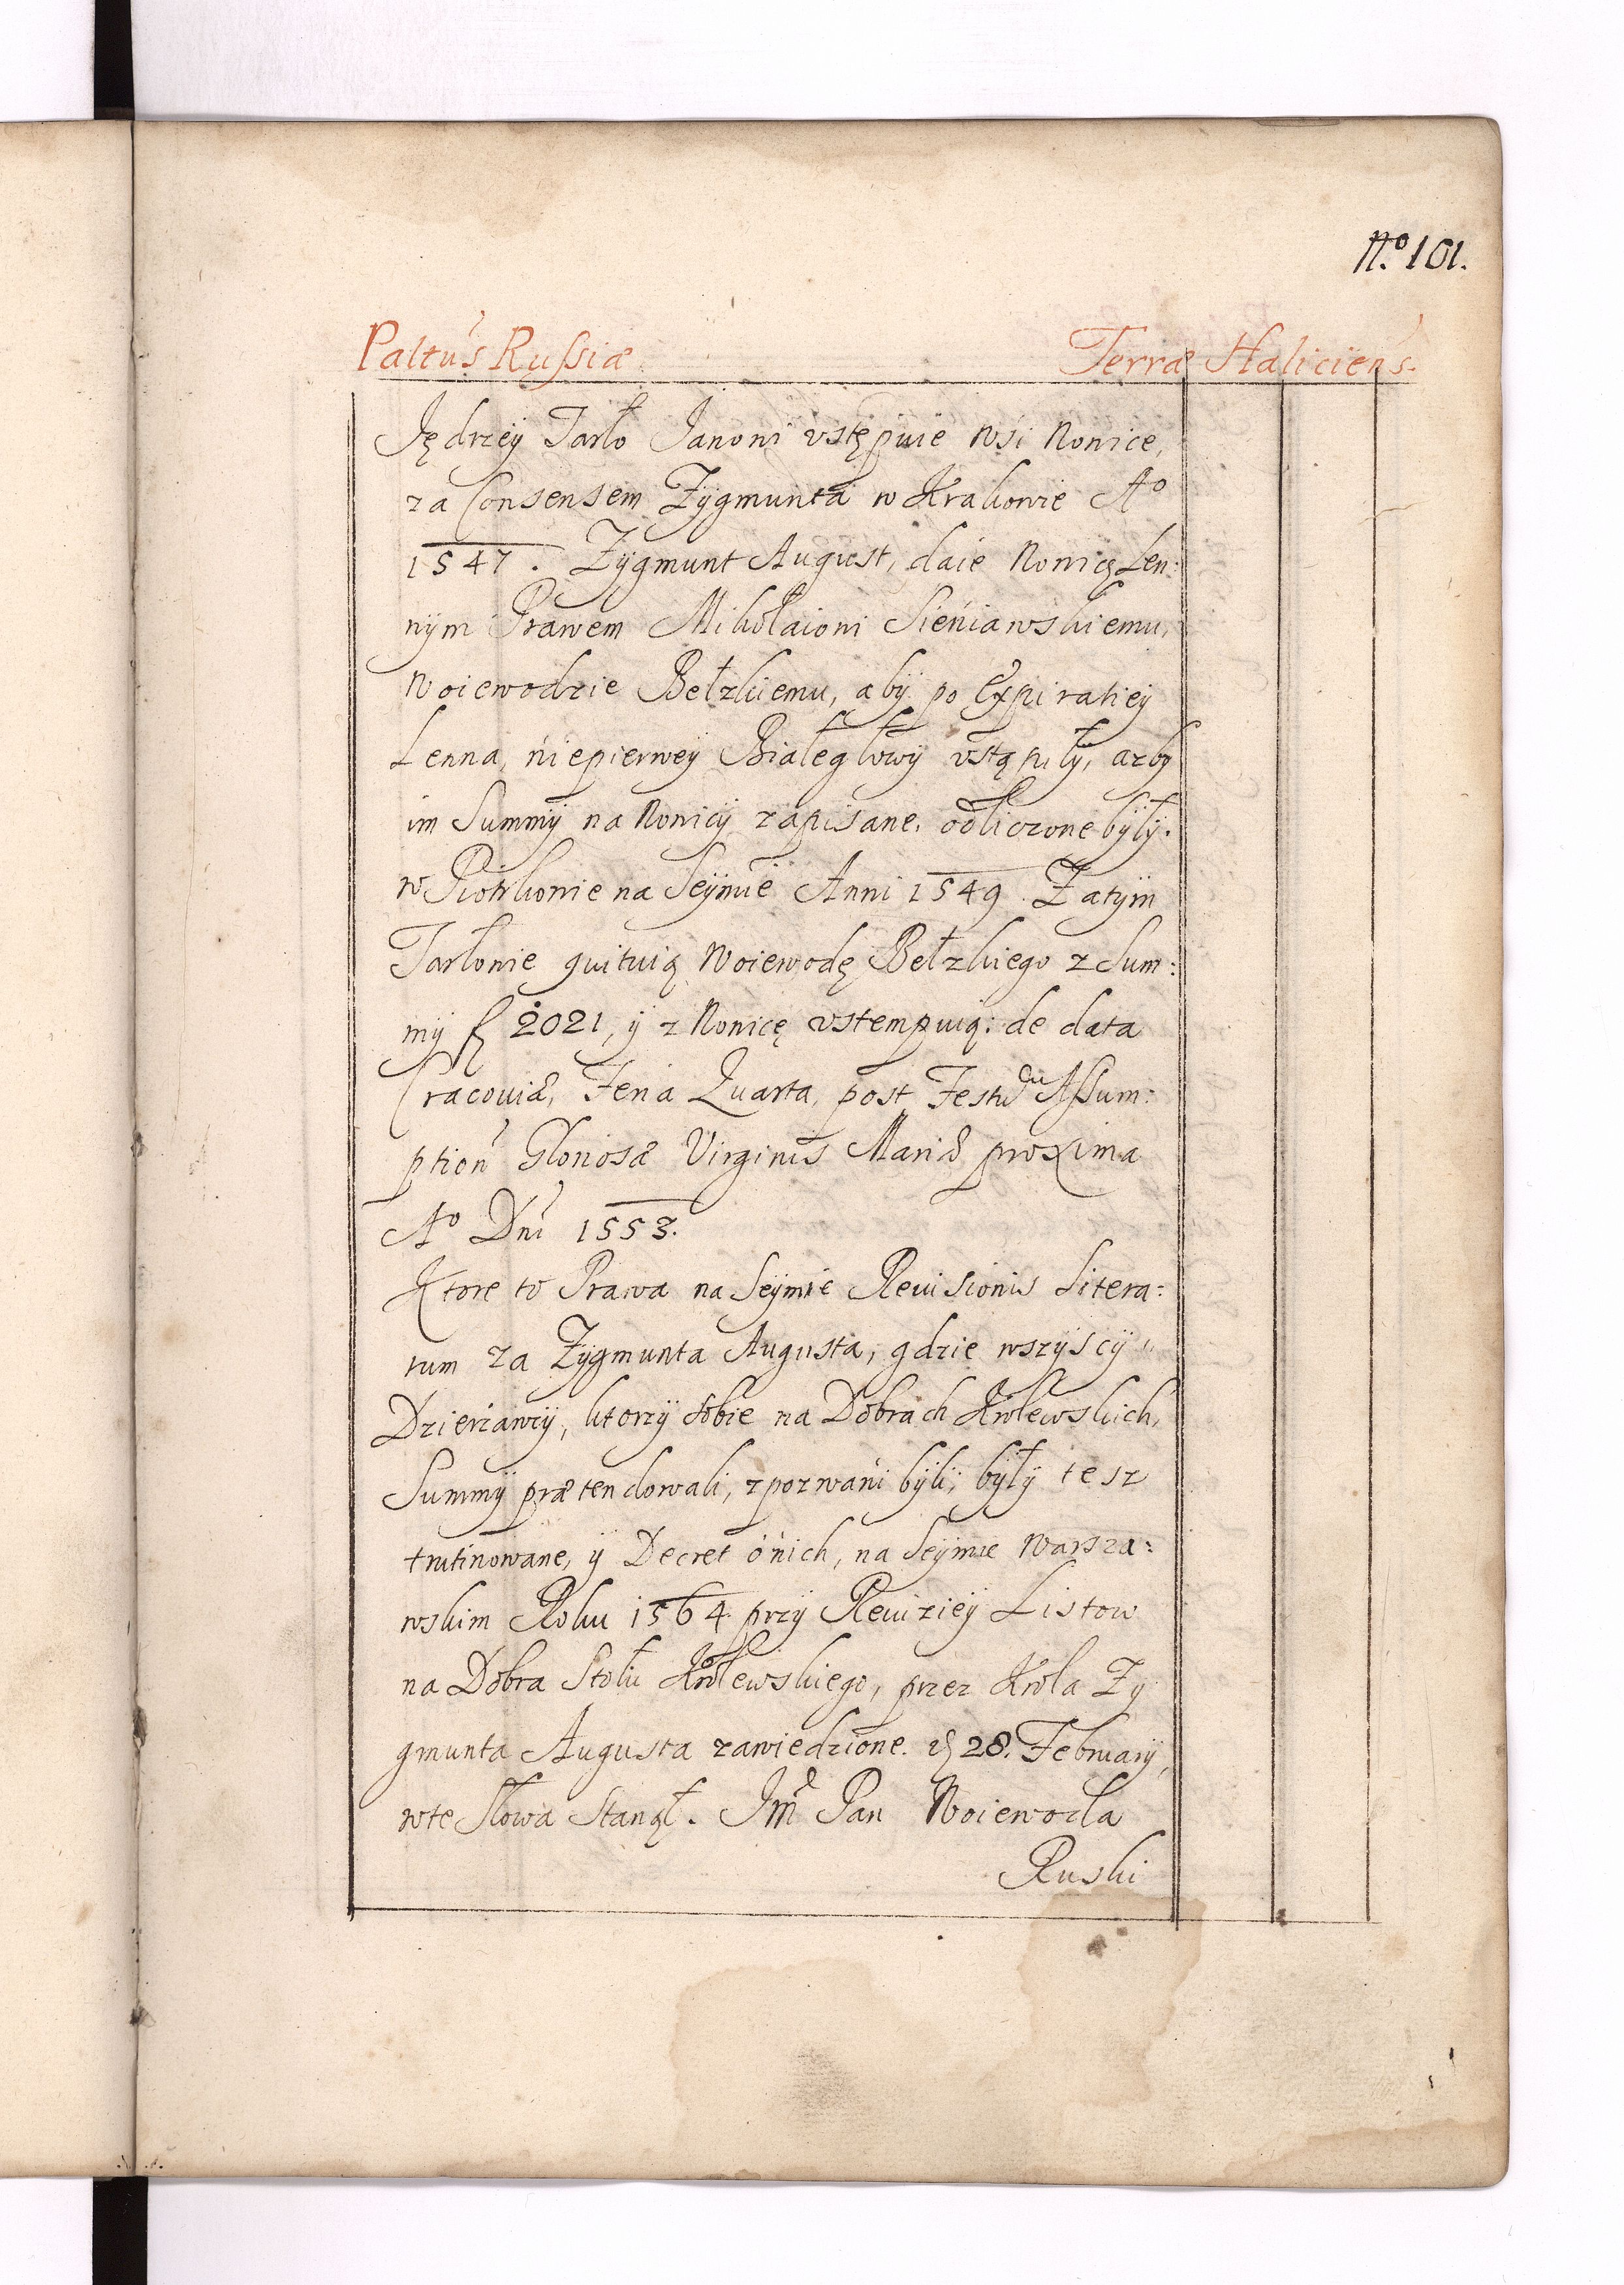 No. 101.
Paltus Russiæ Terræ Haliciens.
Jędrzey Tarło Janowi vstępuie wsi Nowice,
za Consensem Zygmunta w Krakowie Ao
1547. Zygmunt August, daie Nowicę Len:
nym Prawem Mikołaiowi Sieniawskiemu,
Woiewodzie Bełzkiemu, aby po Expiratiey
Lenna, niepierwey Białegłowy vstąpiły, azby
im Summy na Nowicy zapisane, odliczone były.
w Piotrkowie na Seymie Anni 1549. Zatym
Tarłowie quituią Woiewodę Bełzkiego z Sum:
my fl 2021, y z Nowicę vstempuią: de data
Cracoviæ, Feria Quarta, post Festū Assum:
ption Gloriosæ Virginis Mariæ proxima
Ao Dni 1553.
Ktore to Prawa na Seymie Revisionis Litera:
rum za Zygmunta Augusta, gdzie wszyscy
Dzierzawcy, ktorzy sobie na Dobrach Krolewskich,
Summy prætendowali, zpozwani byli; były tesz
trutinowane, y Decret o nich, na Seymie Warsza:
wskim Roku 1564 przy Rewiziey Listow
na Dobra Stołu Krolewskiego, przez Krola Zy
gmunta Augusta zawiedzione. d 28. February,
w te Słowa Stanął. Jm Pan Woiewoda
Ruski